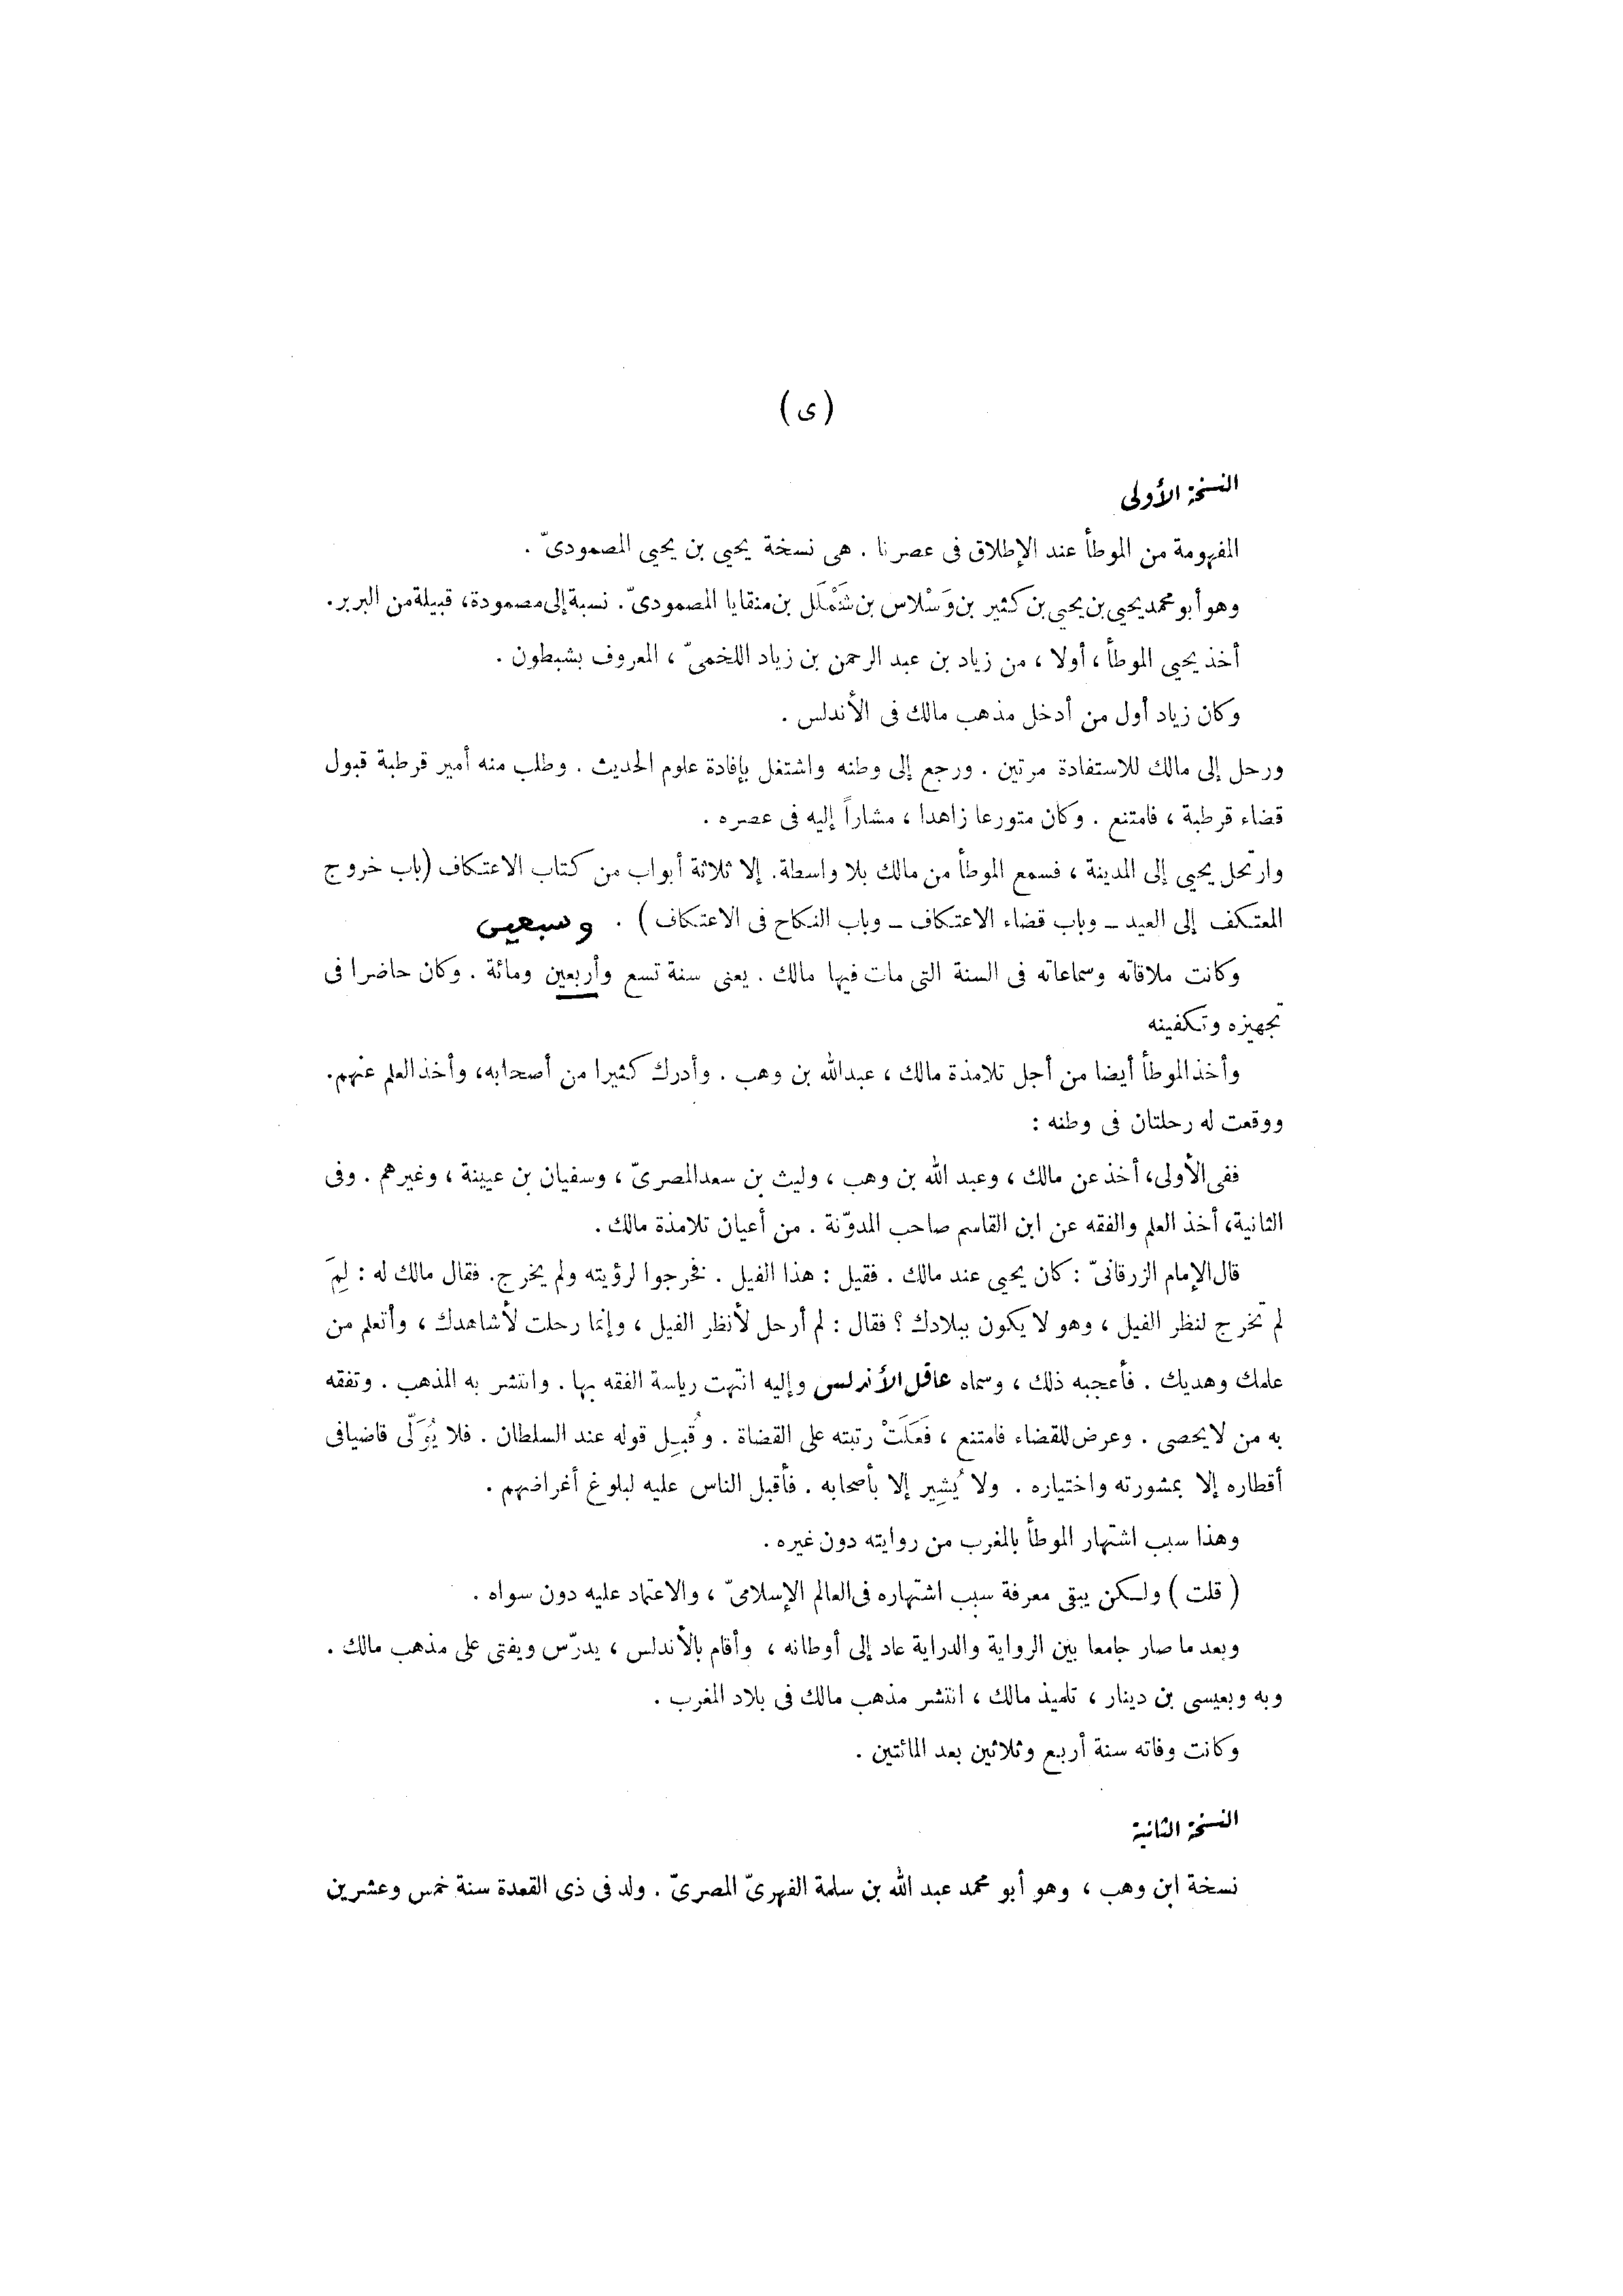 (ى)
النسخة الأولى
المفهومة من الموطأ عند الإطلاق فى عصرنا . هى نسخة يحيى بن يحيى المصمودىّ .
وهو أبو محمد يحيى بن يحيى بن كثير بن وَسْلاس بن شَمْلَل بن منقايا المصمودىّ. نسبة إلى مصمودة، قبيلة من البربر.
أخذ يحيى الموطأ ، أولا ، من زياد بن عبد الرحمن بن زياد اللخمىّ ، المعروف بشبطون .
وكان زياد أول من أدخل مذهب مالك فى الأندلس .
ورحل إلى مالك للاستفادة مرتين . ورجع إلى وطنه واشتغل بإفادة علوم الحديث . وطلب منه أمير قرطبة قبول
قضاء قرطبة ، فامتنع . وكان متورعا زاهدا ، مشاراً إليه فى عصره .
وارتحل يحيى إلى المدينة ، فسمع الموطأ من مالك بلا واسطة. إلا ثلاثة أبواب من كتاب الاعتكاف (باب خروج
المعتكف إلى العيد – وباب قضاء الاعتكاف – وباب النكاح فى الاعتكاف) . وسبعين
وكانت ملاقاته وسماعاته فى السنة التى مات فيها مالك . يعنى سنة تسع وأربعين ومائة . وكان حاضرا فى
تجهيزه وتكفينه
وأخذ الموطأ أيضا من أجل تلامذة مالك ، عبدالله بن وهب . وأدرك كثيرا من أصحابه، وأخذ العلم عنهم.
ووقعت له رحلتان فى وطنه :
ففى الأولى، أخذ عن مالك ، وعبد الله بن وهب ، وليث بن سعد المصرىّ ، وسفيان بن عيينة ، وغيرهم . وفى
الثانية، أخذ العلم والفقه عن ابن القاسم صاحب المدوّنة . من أعيان تلامذة مالك .
قال الإمام الزرقانىّ : كان يحيى عند مالك . فقيل : هذا الفيل . فخرجوا لرؤيته ولم يخرج. فقال مالك له : لِمَ
لم تخرج لنظر الفيل ، وهو لا يكون ببلادك ؟ فقال : لم أرحل لأنظر الفيل ، وإنما رحلت لأشاهدك ، وأتعلم من
علمك وهديك . فأعجبه ذلك ، وسماه عاقل الأندلس وإليه انتهت رياسة الفقه بها . وانتشر به المذهب . وتفقه
به من لا يحصى . وعرض للقضاء فامتنع ، فَعَلَتْ رتبته على القضاة . وقُبِل قوله عند السلطان . فلا يُوَلّى قاضيا فى
أقطاره إلا بمشورته واختياره . ولا يُشِير إلا بأصحابه . فأقبل الناس عليه لبلوغ أغراضهم .
وهذا سبب اشتهار الموطأ بالمغرب من روايته دون غيره .
( قلت ) ولكن يبقى معرفة سبب اشتهاره فى العالم الإسلامىّ ، والاعتماد عليه دون سواه .
وبعد ما صار جامعا بين الرواية والدراية عاد إلى أوطانه ، وأقام بالأندلس ، يدرّس ويفتى على مذهب مالك .
وبه وبعيسى بن دينار ، تلميذ مالك ، انتشر مذهب مالك فى بلاد المغرب .
وكانت وفاته سنة أربع وثلاثين بعد المائتين .
النسخة الثانية
نسخة ابن وهب ، وهو أبو محمد عبد الله بن سلمة الفهرىّ المصرىّ . ولد فى ذى القعدة سنة خمس وعشرين